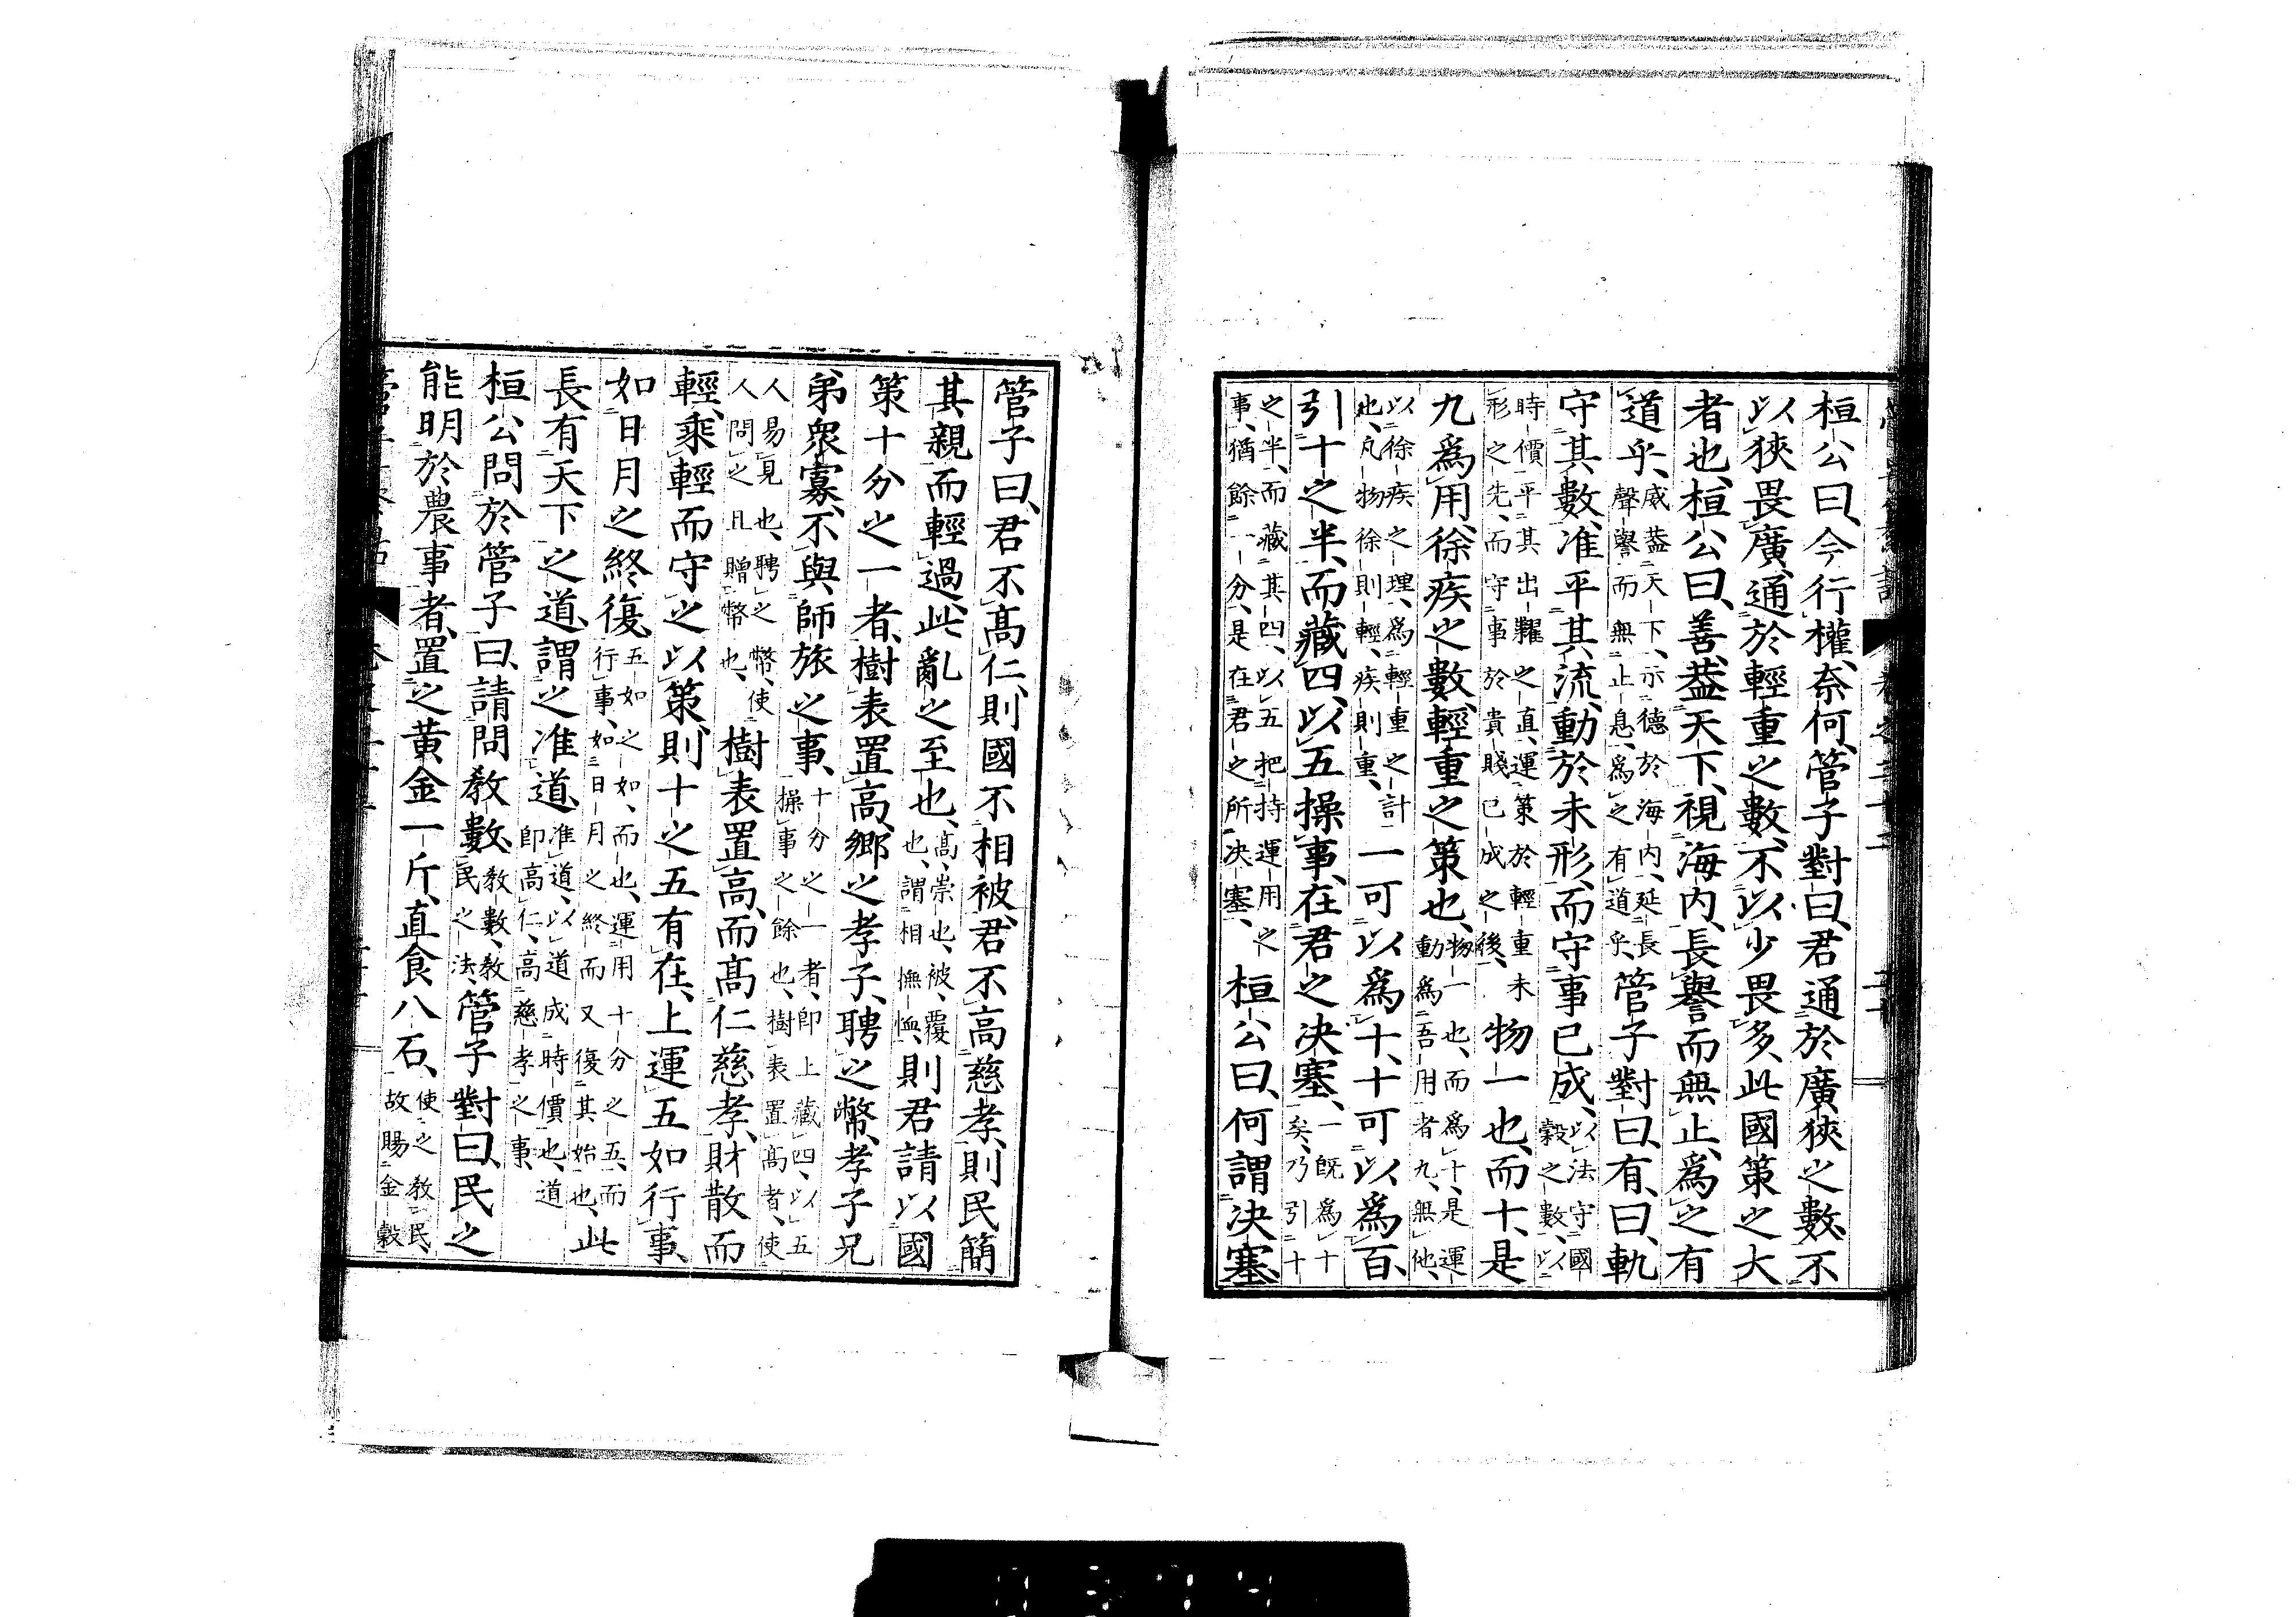 桓公曰、今行權、奈何、管子對曰、君通於廣狹之數、不
以狹畏廣、通於輕重之數、不以少畏多、此國策之大
者也、桓公曰、善、葢天下、視海内、長譽而無止、爲之有
道乎、威葢天下、示德於海内、延長聲譽而無止息、爲之有道乎、管子對曰、有、曰、軌
守其數、准平其流、動於未形、而守事已成、以法守國穀之數、以
時價平其出糶之直、運策於輕重未形之先、而守事於貴賤已成之後、物一也、而十、是
九爲用、徐疾之數、輕重之策也、物一也、而爲十、是運動爲吾用者九、無他、
以徐疾之理、爲輕重之計也、凡物徐則輕、疾則重、一可以爲十、十可以爲百、
引十之半、而藏四、以五操事、在君之决塞、一既爲十矣、乃引十
之半、而藏其四、以五把持運用之事、猶餘一分、是在君之所决塞、桓公曰、何謂决塞、
管子曰、君不高仁、則國不相被、君不高慈孝、則民簡
其親而輕過、此亂之至也、高、崇也、被、覆也、謂相撫恤、則君請以國
策十分之一者、樹表置高、鄉之孝子、聘之幣、孝子兄
弟衆寡、不與師旅之事、十分之一者、即上藏四、以五操事之餘也、樹表置高者、使
人易見也、聘之幣、使人問之且贈幣也、樹表置高、而高仁慈孝、財散而
輕、乘輕而守之以策、則十之五有在上、運五如行事、
如日月之終復、五如之如、而也、運用十分之五、而行事、如日月之終而又復其始也、此
長有天下之道、謂之准道、准道、以道成時價也、道即高仁、高慈孝之事、
桓公問於管子曰、請問教數、教數、教民之法、管子對曰、民之
能明於農事者、置之黃金一斤、直食八石、使之教民、故賜金穀